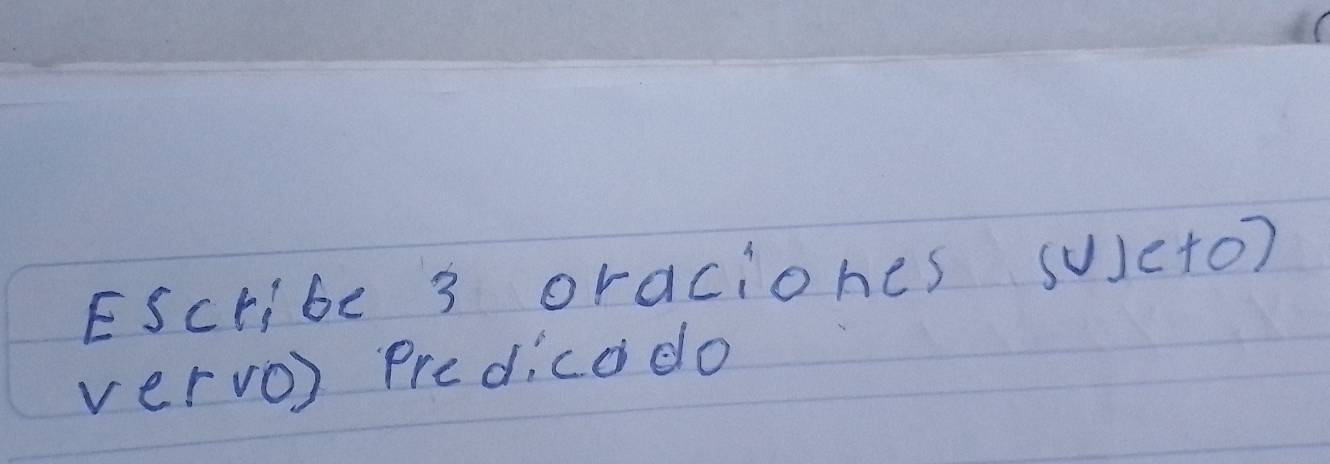 Escribe 3 oraciones sujeto)
vervo) Predicado